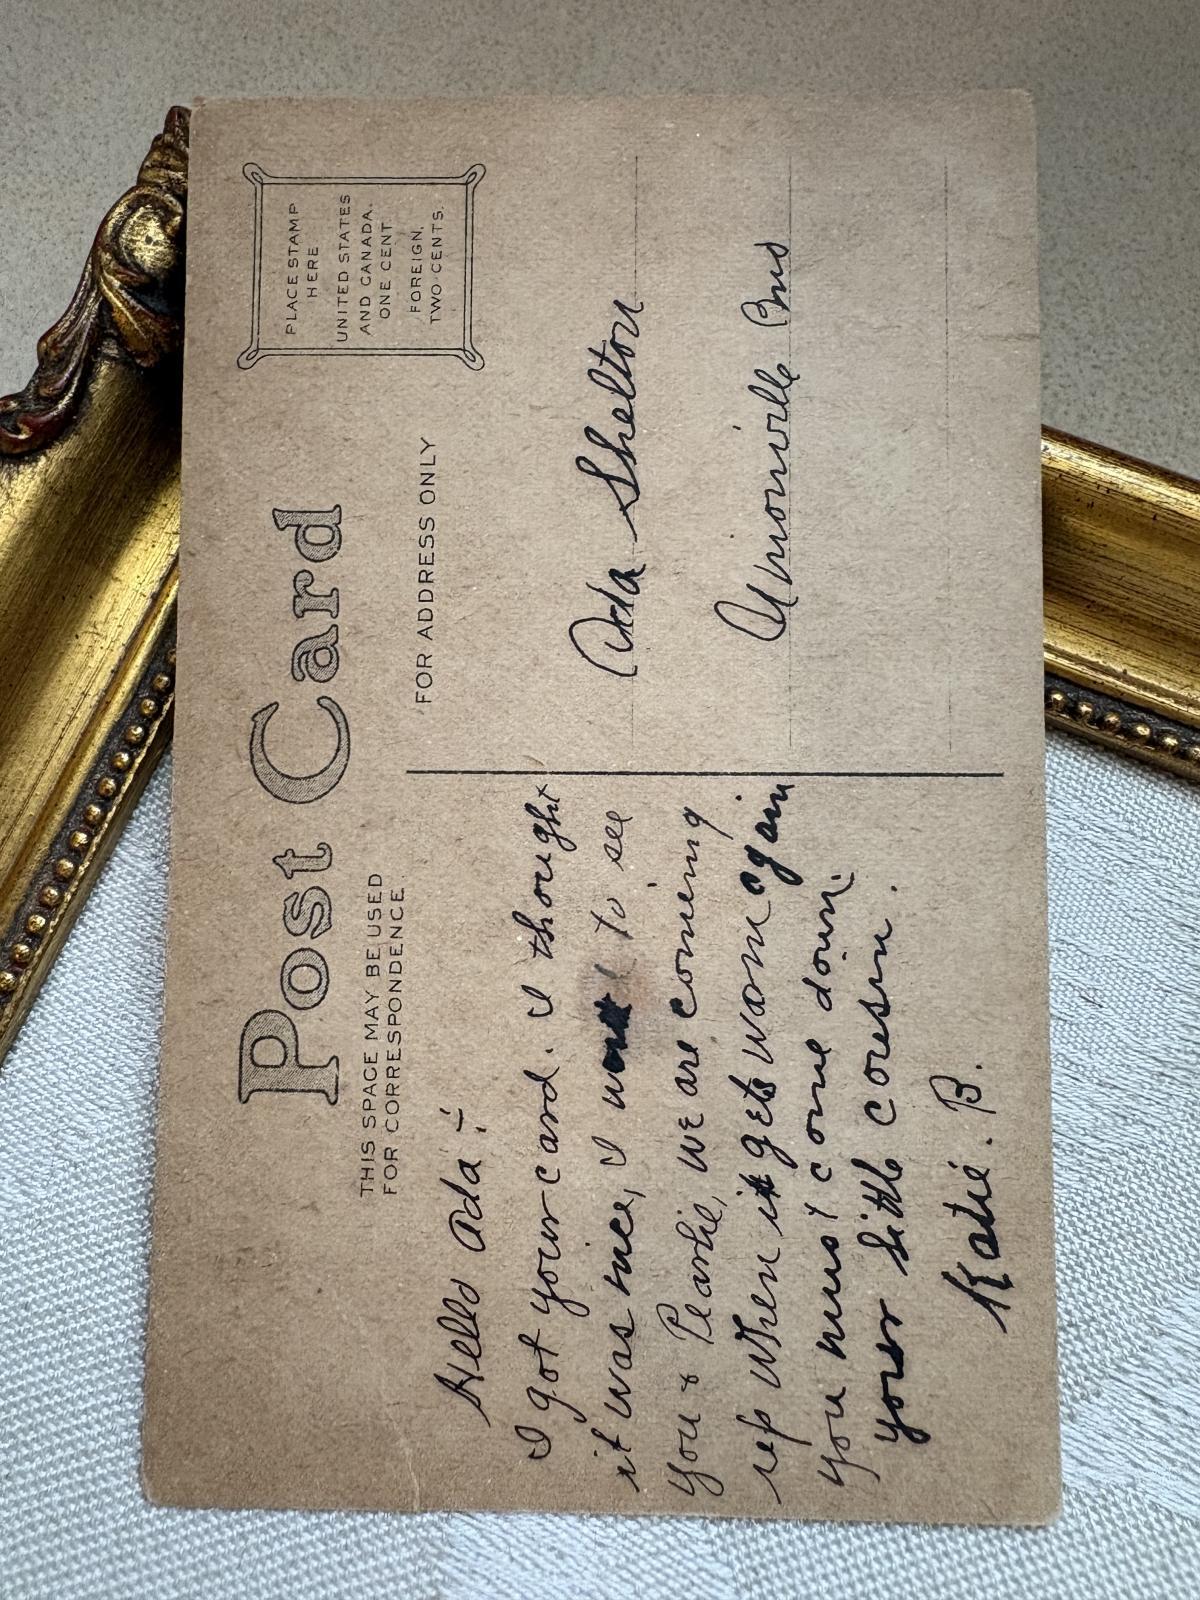 Post Card
THIS SPACE MAY BE USED
FOR CORRESPONDENCE.
FOR ADDRESS ONLY
PLACE STAMP
HERE
UNITED STATES
AND CANADA.
ONE CENT
FOREIGN,
TWO CENTS.
Hello Ada:-
I got your card. I thought
it was nice, I want to see
you & Pearlie, we are coming
up when it gets warm again
you must come down.
your little cousin.
Katie. B.
Ada Shelton
Unionville